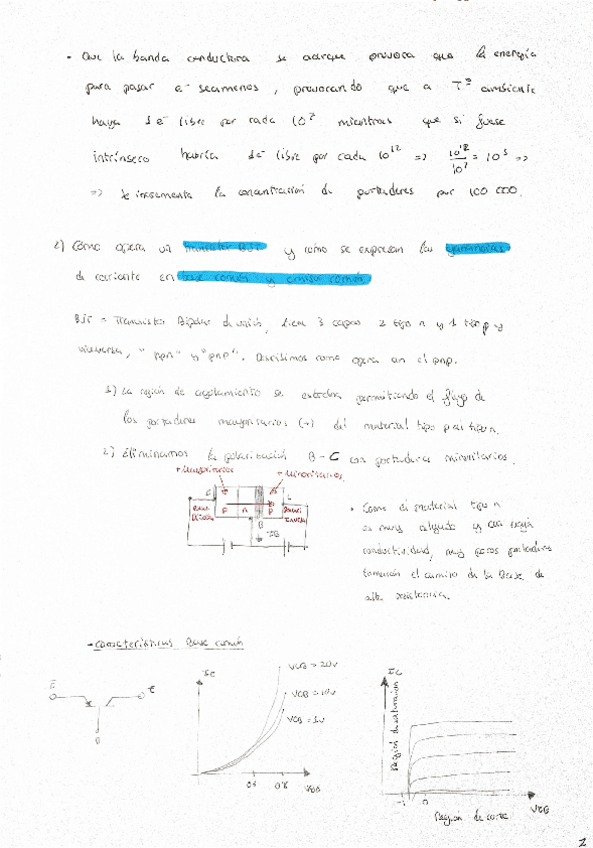 · Que la banda conductora se acerque provoca que la energía
para pasar e⁻ sea menos, provocando que a Tª ambiente
haya 1 e⁻ libre por cada 10⁷ mientras que si fuese
intrínseco habría 1e⁻ libre por cada 10¹² => 10¹²/10⁷ = 10⁵ =>
=> Se incrementa la concentración de portadores por 100 000.
2) Cómo opera un transistor BJT y como se expresan las ganancias
de corriente en base común y emisor común
BJT = Transistor Bipolar de unión, tiene 3 capas 2 tipo n y 1 tipo p y
viceversa, "npn" y "pnp". Describimos como opera en el pnp.
1) La región de agotamiento se estrecha permitiendo el flujo de
los portadores mayoritarios (+) del material tipo p al tipo n.
2) Eliminamos la polarización B-C con portadores minoritarios.
+ Mayoritarios
+ Minoritarios
E
C
p n p
B
IB
· Como el material tipo n
es muy delgado y con baja
conductividad, muy pocos portadores
tomarán el camino de la Base de
alta resistencia.
- Características Base común
E
C
B
IC
VCB = 20V
VCB = 10V
VCB = 1V
0.6
0.8
IC
Región de saturación
-1
0
VCB
Región de corte
2